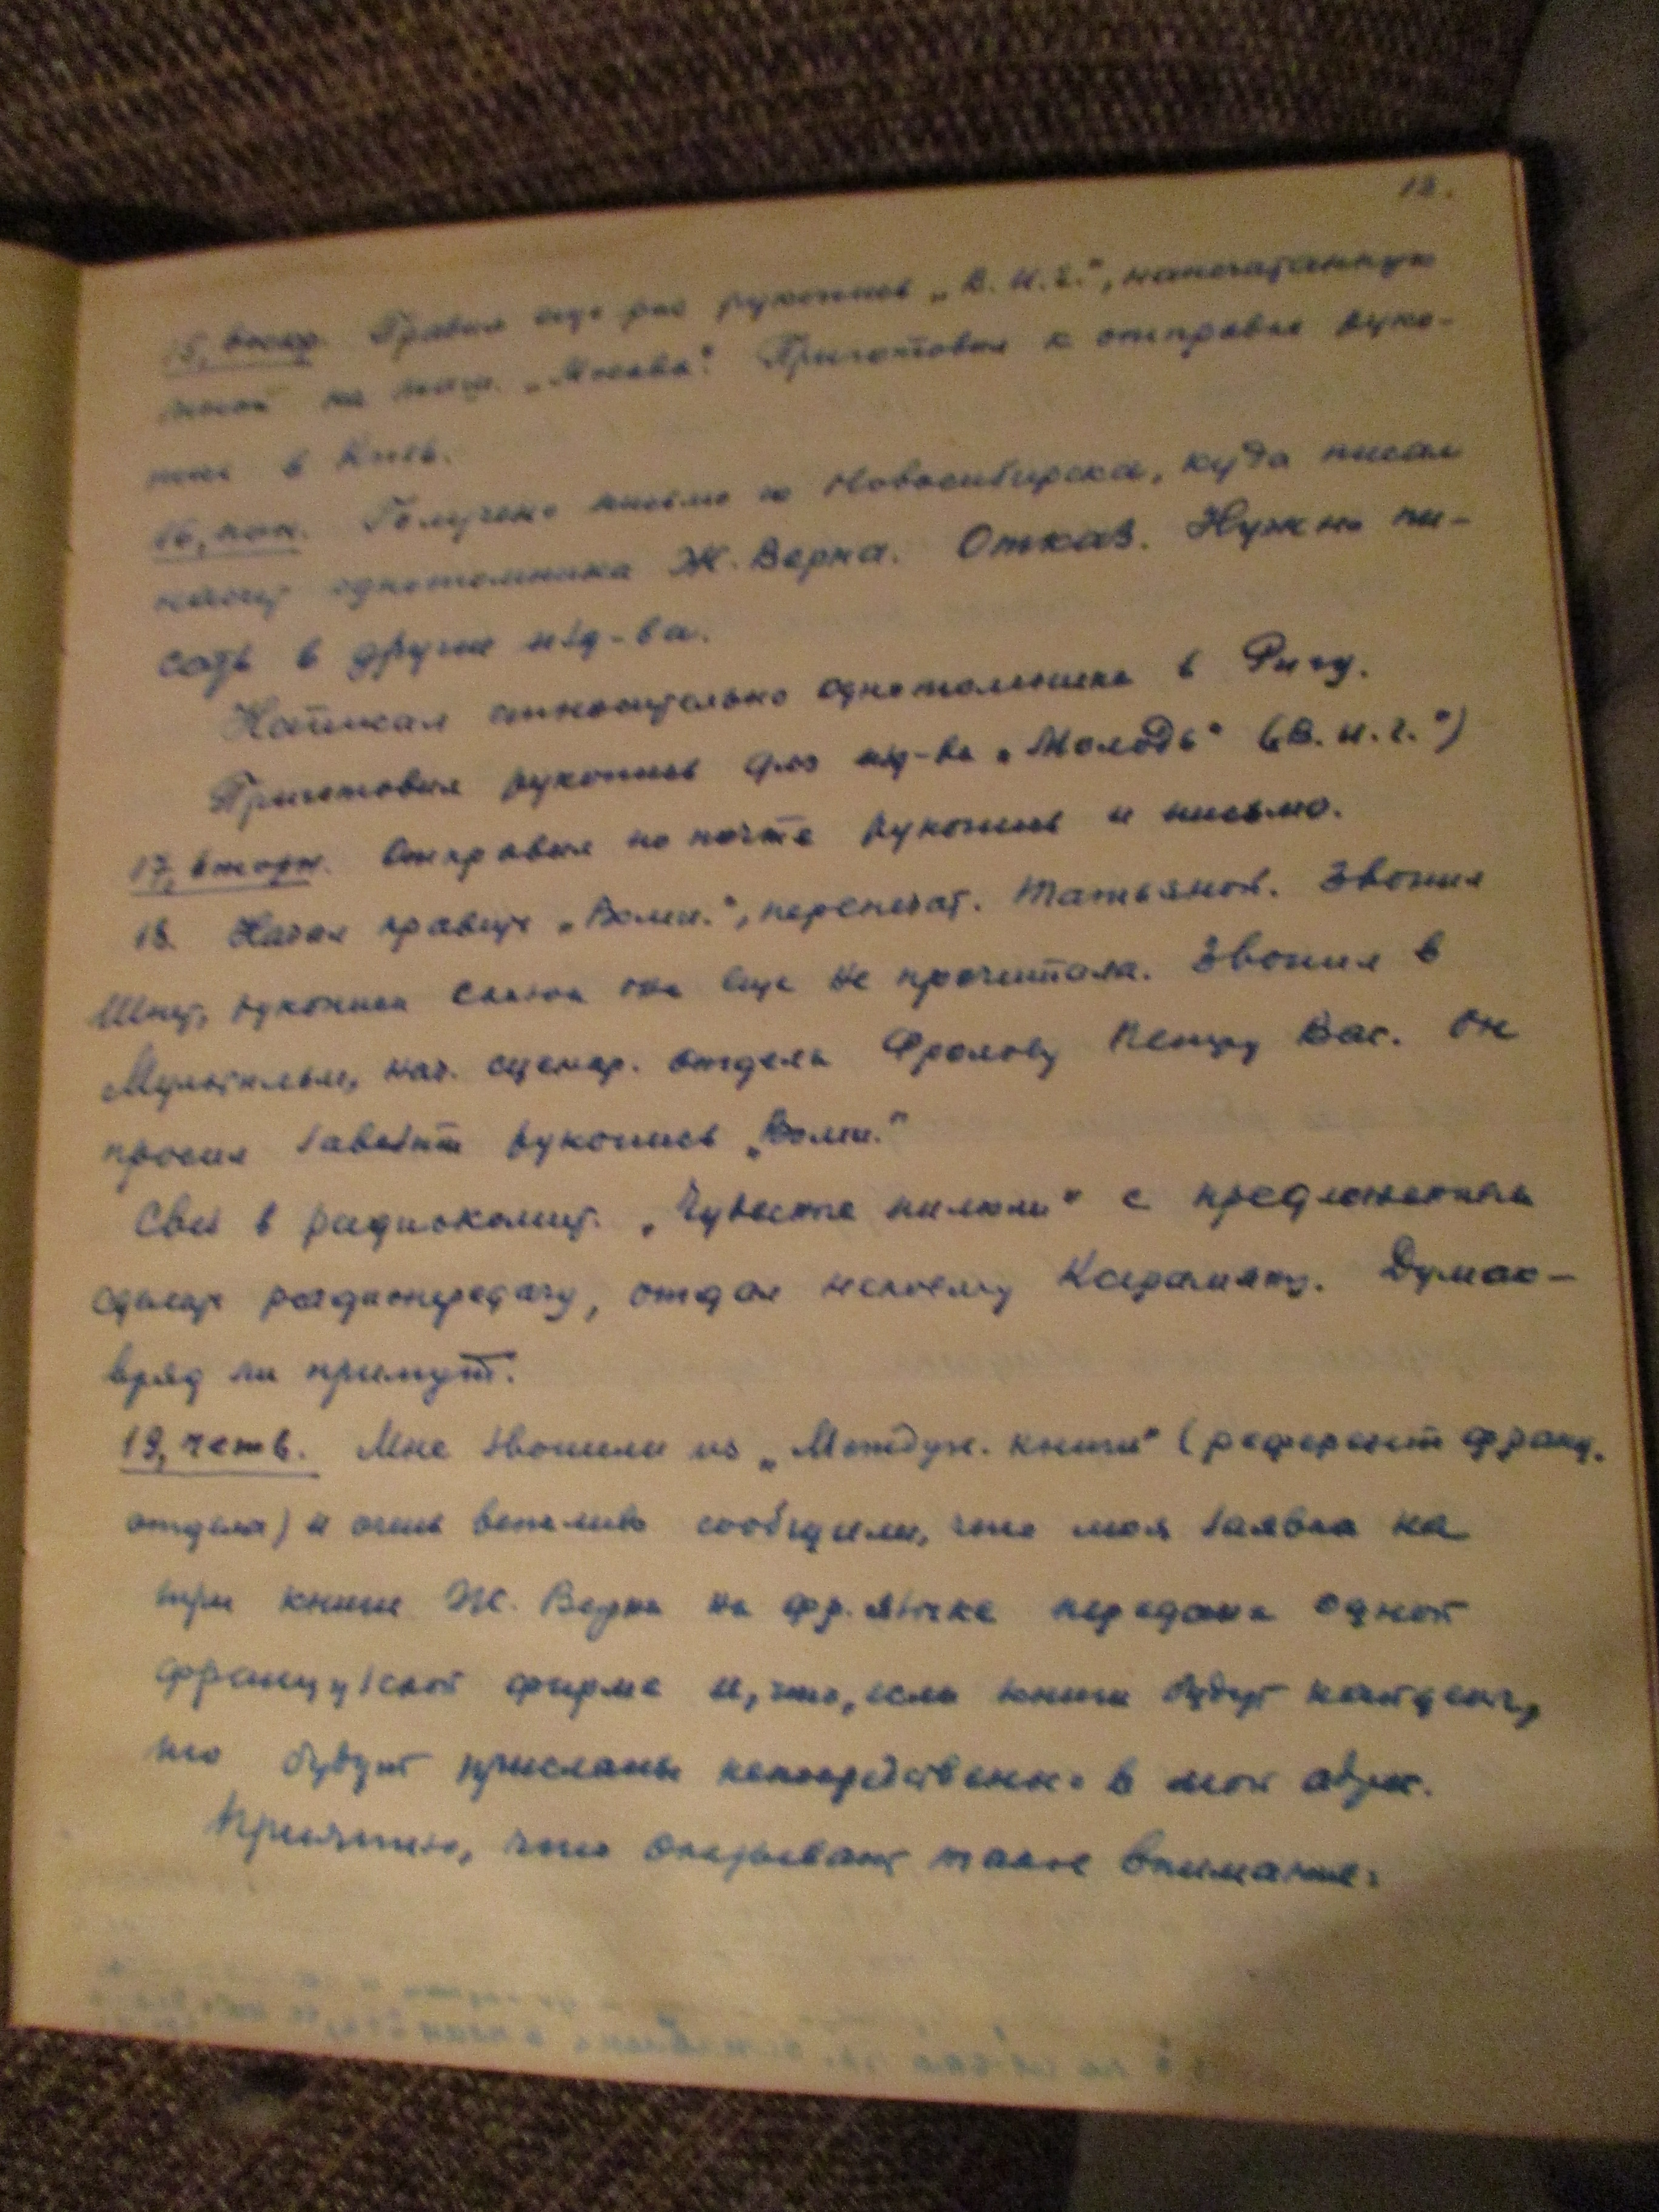 15, воскр. Правил еще раз рукопись „В. и. г.", напечатанную
мной на маш. „Москва". Приготовил к отправке руко-
пись в Киев.
16, пон. Получено письмо из Новосибирска, куда писал
насчет однотомника Ж. Верна. Отказ. Нужно пи-
сать в другие изд-ва.
Написал относительно однотомника в Ригу.
Приготовил рукопись для изд-ва „Молодь" („В. и. г.")
17, вторн. Отправил по почте рукопись и письмо.
18. Начал править „Волш.", перепечат. Татьяной. Звонил
рукописи она еще не прочитала. Звонил в
Мультфильм, нач. сценар. отдела Фролову Петру Вас. Он
просил завезти рукопись „Волш."
Свез в радиокомит. „Чудесные пилюли" с предложением
сделать радиопередачу, отдал некоему Думаю –
вряд ли примут.
19, четв. Мне звонили из „Междун. книги" (референт франц.
отдела) и очень вежливо сообщили, что моя заявка на
три книги Ж. Верна на фр. языке передана одной
французской фирме и, что, если книги будут найдены,
то будут присланы непосредственно в мой адрес.
Приятно, что оказывают такое внимание.